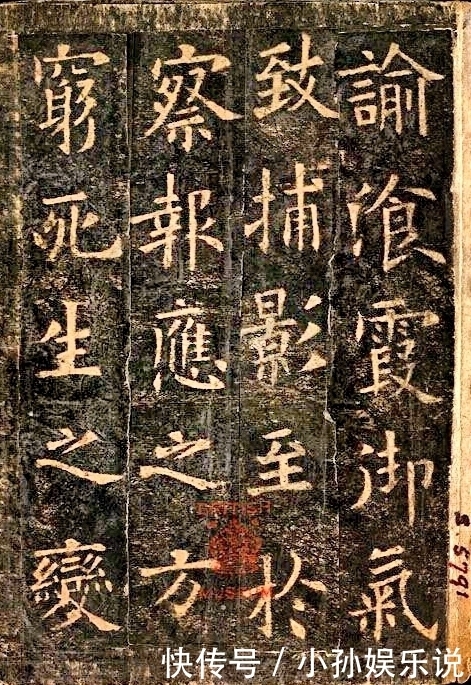 諭飡霞御氣
致捕影至於
察報應之方
窮死生之變
S.5791
MUSEUM
快传号 / 小孙娱乐说